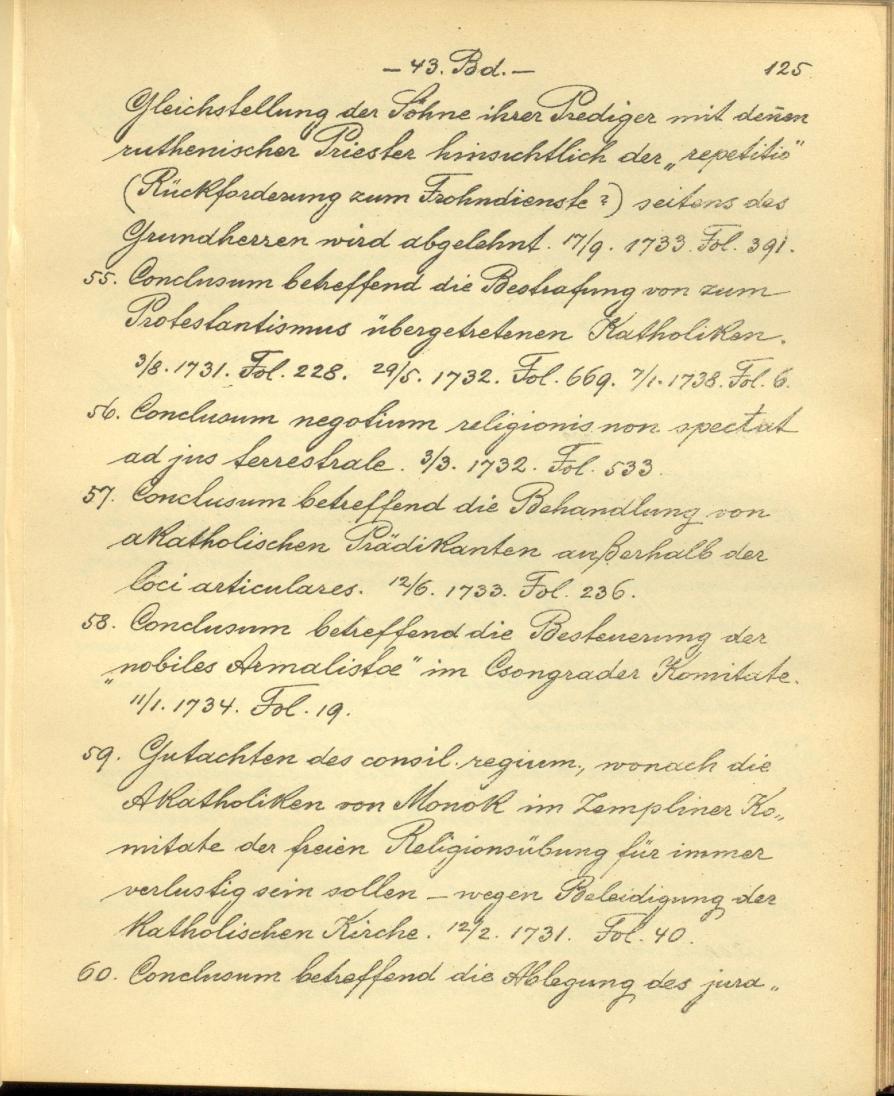 – 43. Bd. – 125
Gleichstellung der Söhne ihrer Prediger mit deñen
ruthenischer Priester hinsichtlich der „repetitio"
(Rückforderung zum Frohndienste?) seitens des
Grundherren wird abgelehnt. 17/9. 1733. Fol. 391.
55. Conclusum betreffend die Bestrafung von zum
Protestantismus übergetretenen Katholiken.
3/8. 1731. Fol. 228. 29/5. 1732. Fol. 669. 7/1. 1738. Fol. 6.
56. Conclusum negotium religionis non spectat
ad jus terrestrale. 3/3. 1732. Fol. 533.
57. Conclusum betreffend die Behandlung von
akatholischen Prädikanten außerhalb der
loci articulares. 12/6. 1733. Fol. 236.
58. Conclusum betreffend die Besteuerung der
„nobiles Armalistae" im Csongrader Komitate.
11/1. 1734. Fol. 19.
59. Gutachten des consil. regium., wonach die
Akatholiken von Monok im Zempliner Ko„
mitate der freien Religionsübung für immer
verlustig sein sollen – wegen Beleidigung der
katholischen Kirche. 12/2. 1731. Fol. 40.
60. Conclusum betreffend die Ablegung des jura„